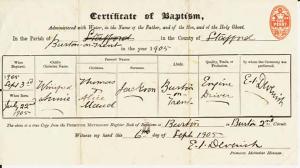 Certificate of Baptism,
Administered with Water, in the Name of the Father, and of the Son, and of the Holy Ghost.
In the Parish of Stafford in the County of Stafford
Burton on Trent
in the year 1905
When Baptized. Child's Christian Name. Parents' Names. Abode. Quality, Trade, or Profession. By whom
1905 Sept 3rd Winifred Annie Thomas & Alice Maud Jackson Burton on Trent Engine Driver E. J. Devenish
Born July 22nd 1905
The above is a true Copy from the Primitive Methodist Register Book of Baptisms in Burton in Burton 2nd Circuit.
Witness my hand this 6th day of Sept 1905
E. J. Devenish
Primitive Methodist Minister.